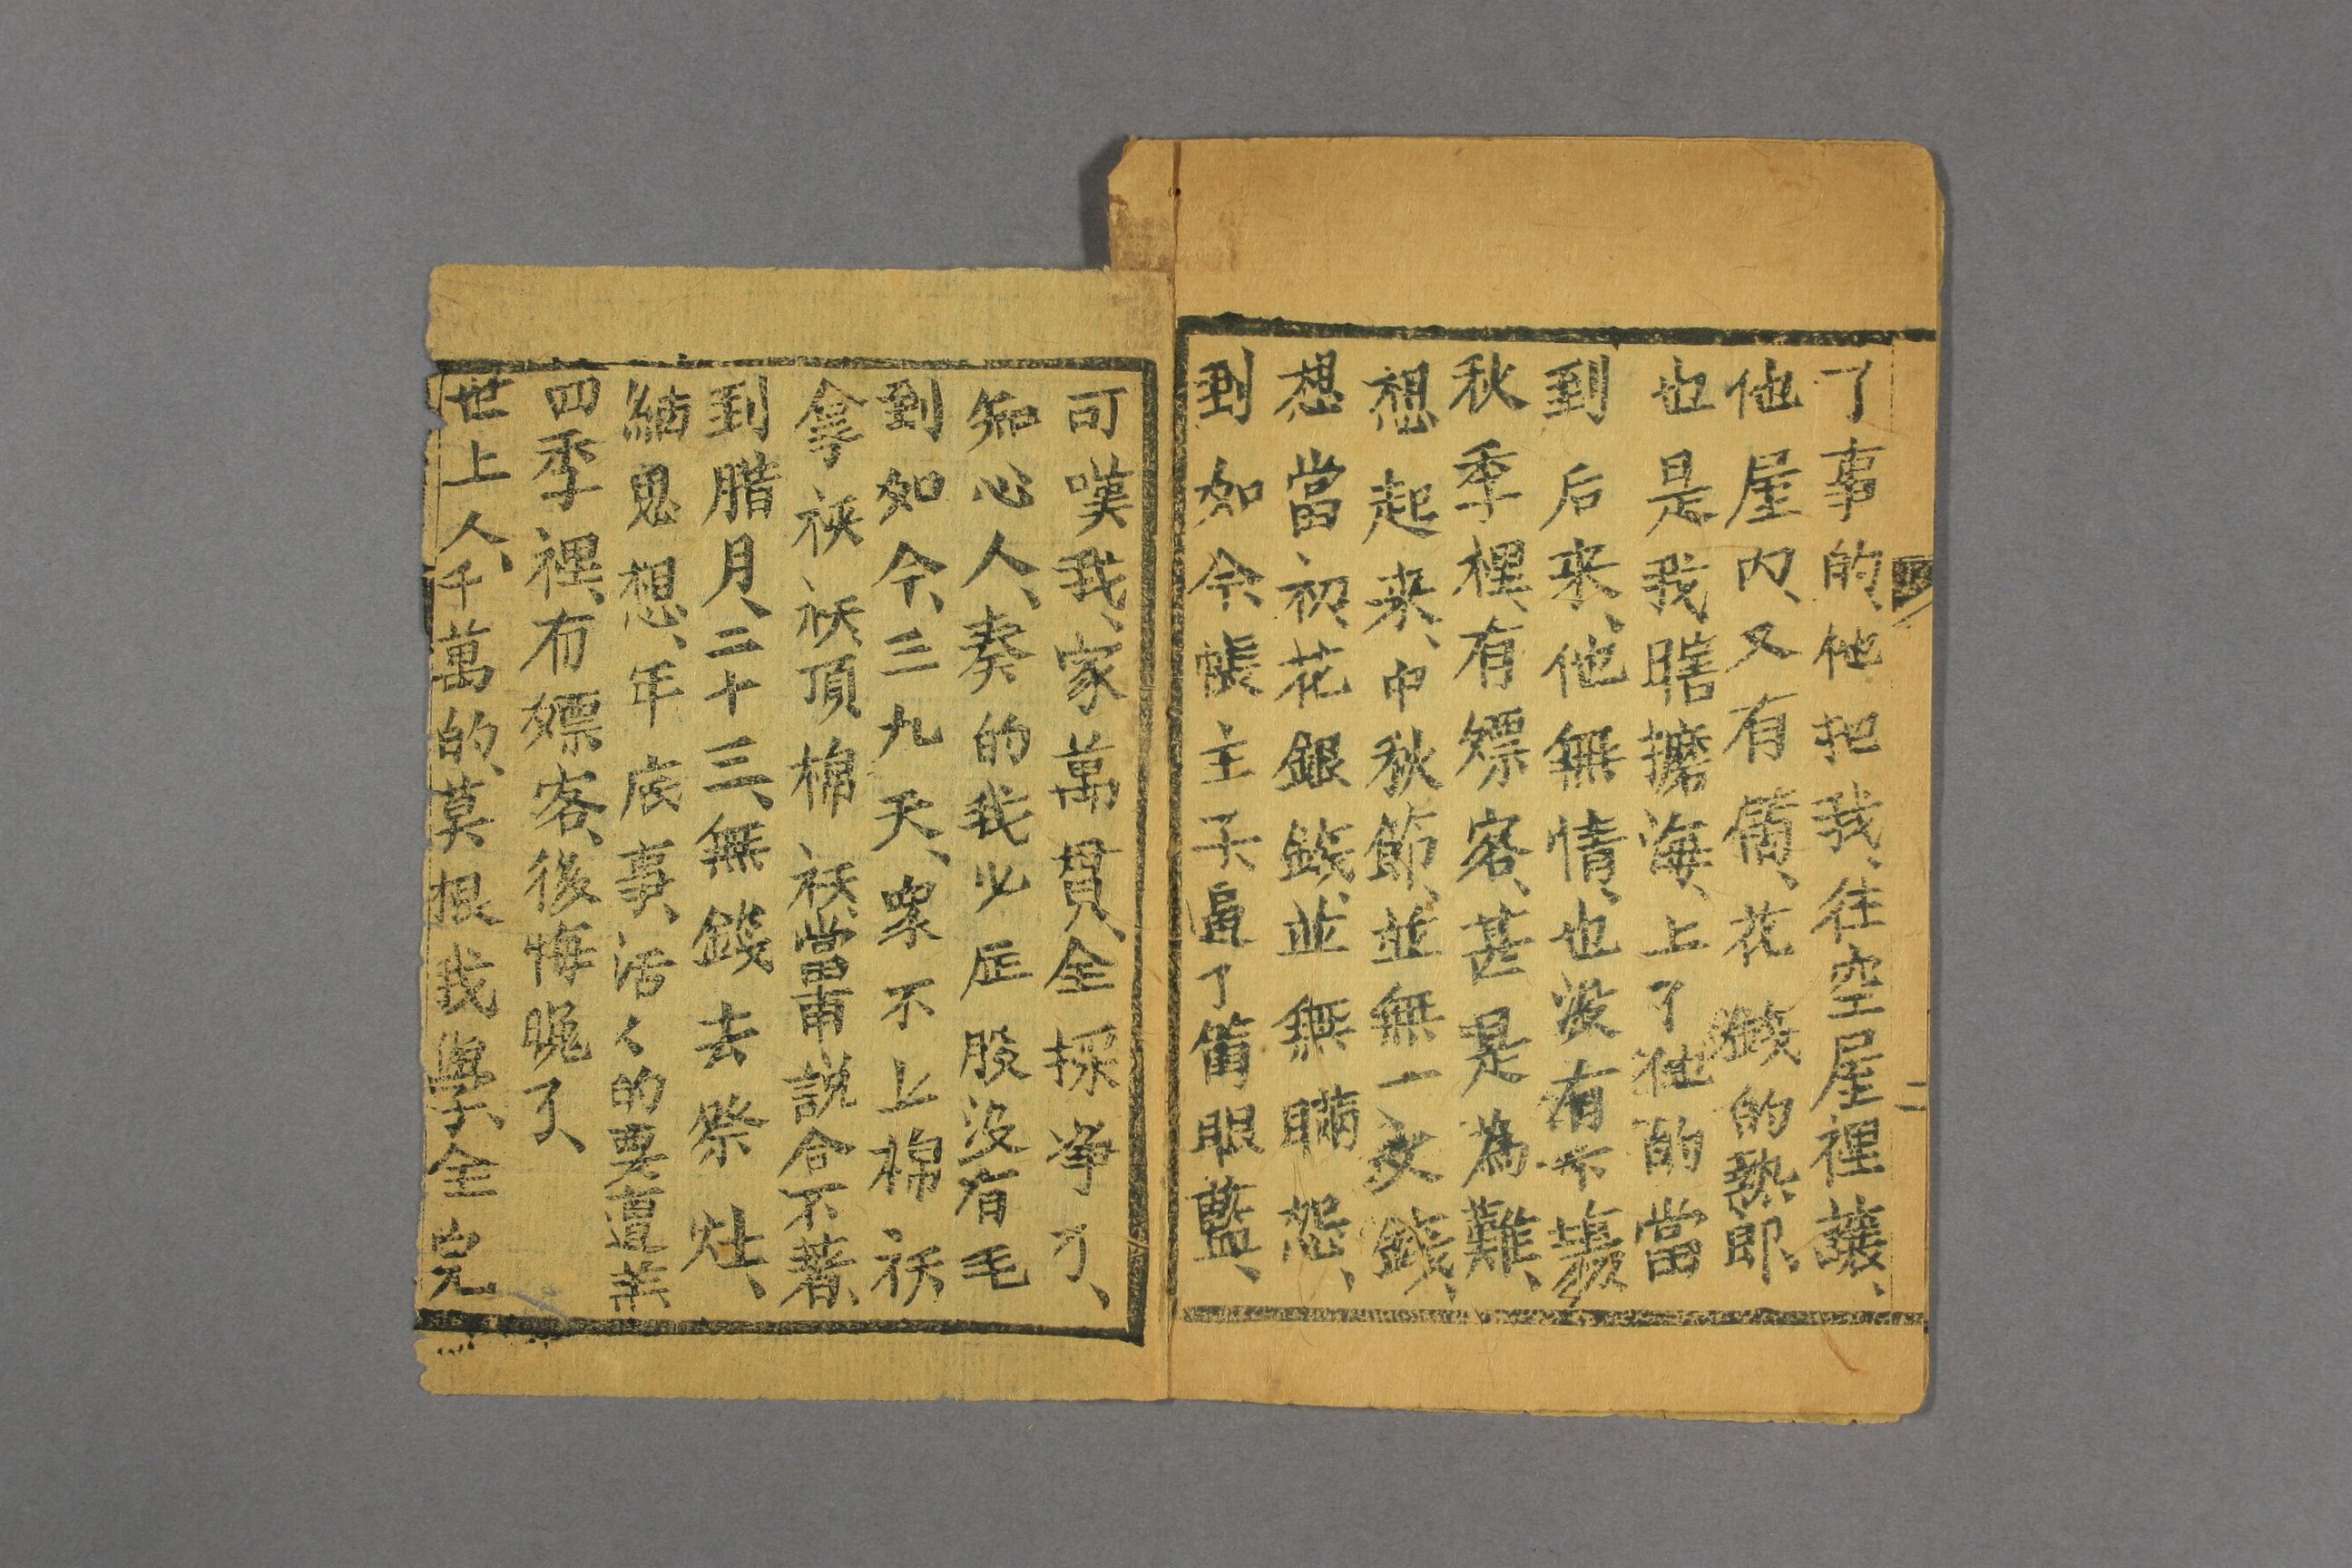 了事的、他把我、往空屋裡讓、
他屋内、又有俻、花錢的熱郎、
也是我瞎擔海、上了他的當
到后来、他無情、也没有
秋季裡、有嫖客、甚是為難、
想起来、中秋節、並無一文錢、
想當初、花銀錢、並無瞞怨、
到如今、帳主子、逼了箇眼藍、
可嘆我、家萬貫、全採净了、
知心人、奏的我、必屁股没有毛
到如今、三九天、衆不上棉袄
拿袂袄頂棉袄當甫説合不著、
到腊月、二十三、無錢去祭灶、
細鬼想、年底事、活〻的要
四季裡、有嫖客、後悔晚了、
世上人、千萬的、莫根我學、全完
二